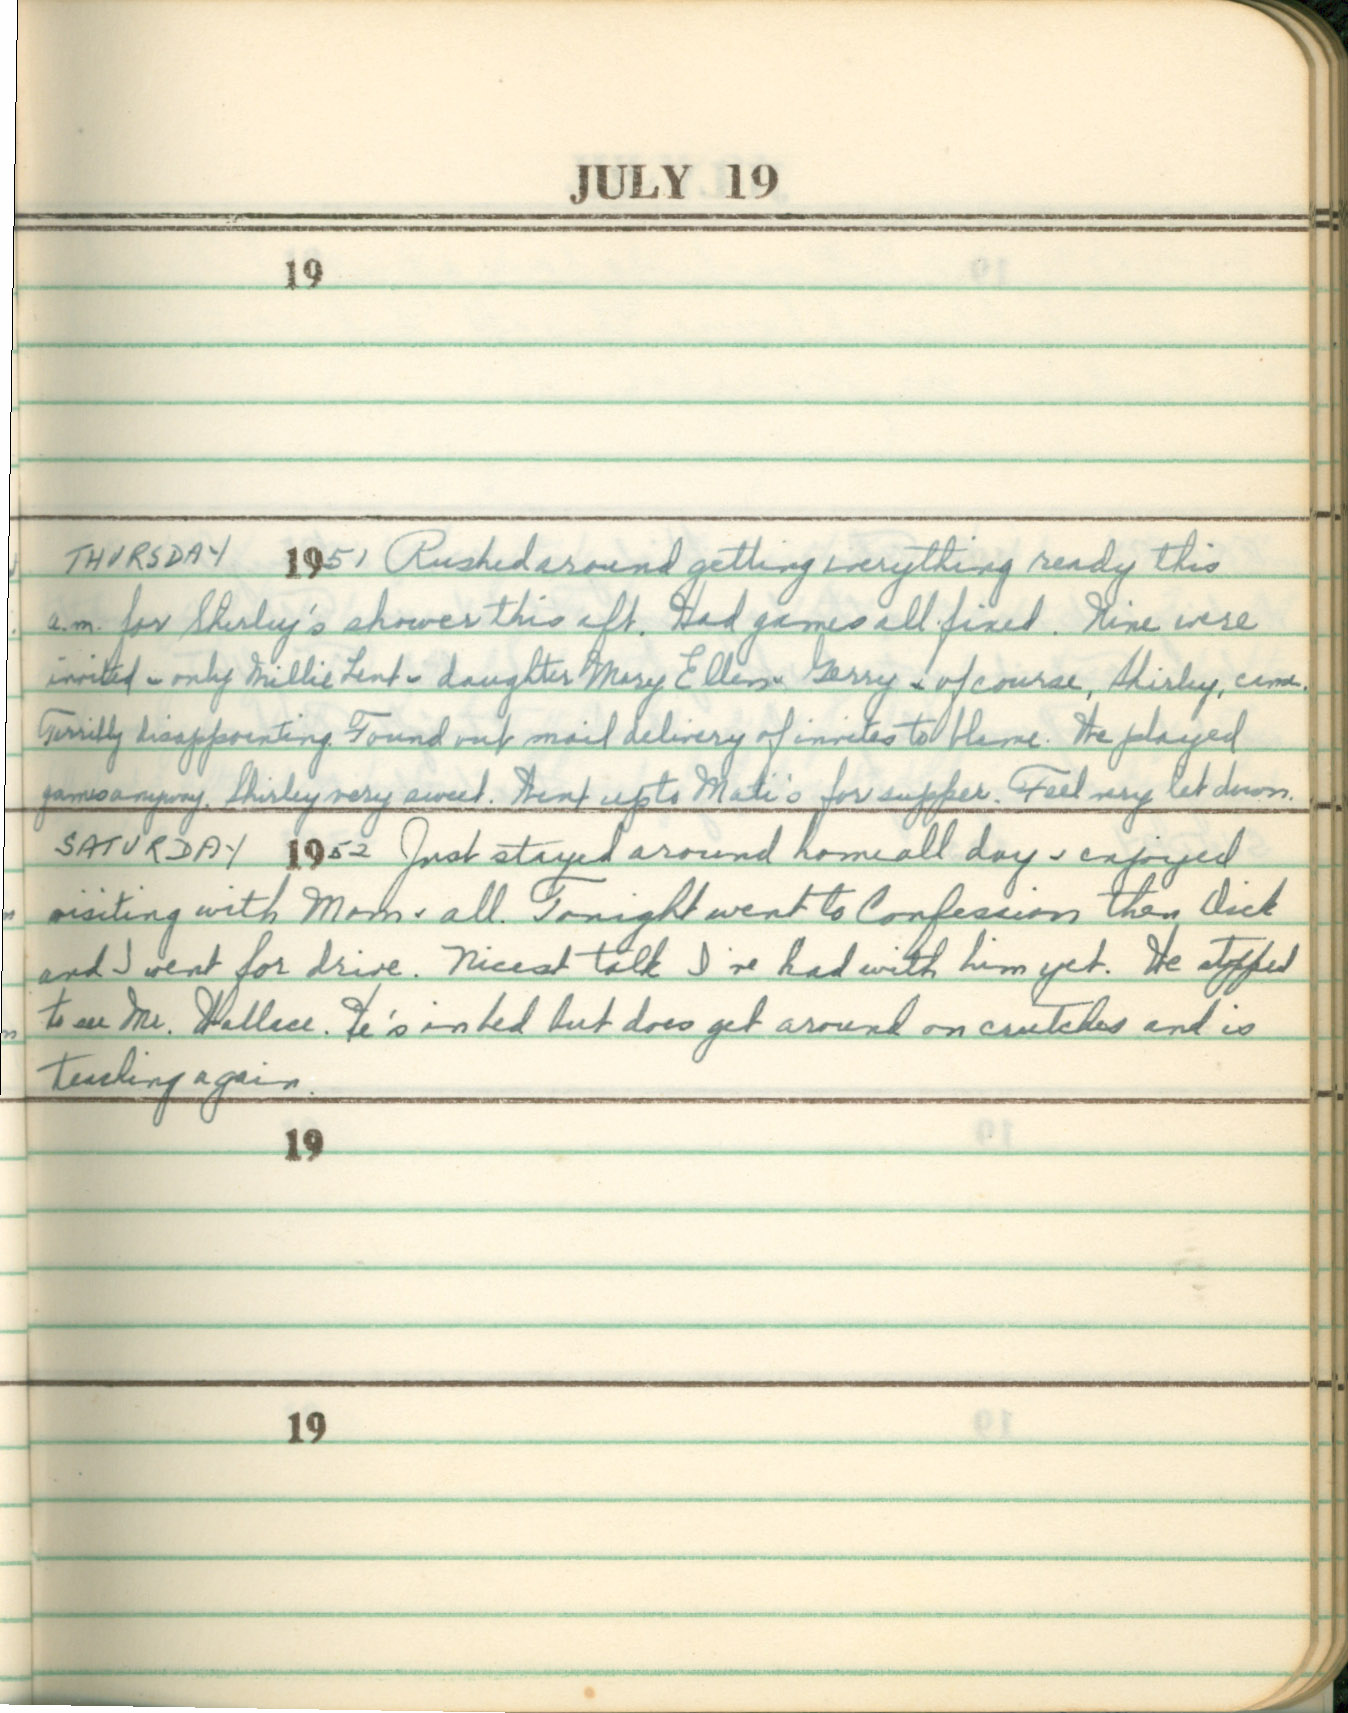 JULY 19
19
THURSDAY 1951 Rushed around getting everything ready this
a.m. for Shirley's shower this aft. Had games all fixed. Nine were
invited & only Millie Lent & daughter Mary Ellen & Gerry & of course, Shirley, came.
Terribly disappointing. Found out mail delivery of invites to blame. We played
games anyway. Shirley very sweet. Went up to Mati's for supper. Feel very let down.
SATURDAY 1952 Just stayed around home all day & enjoyed
visiting with Mom & all. Tonight went to Confession then Dick
and I went for drive. Nicest talk I've had with him yet. We stopped
to see Mr. Wallace. He's in bed but does get around on crutches and is
teaching again.
19
19